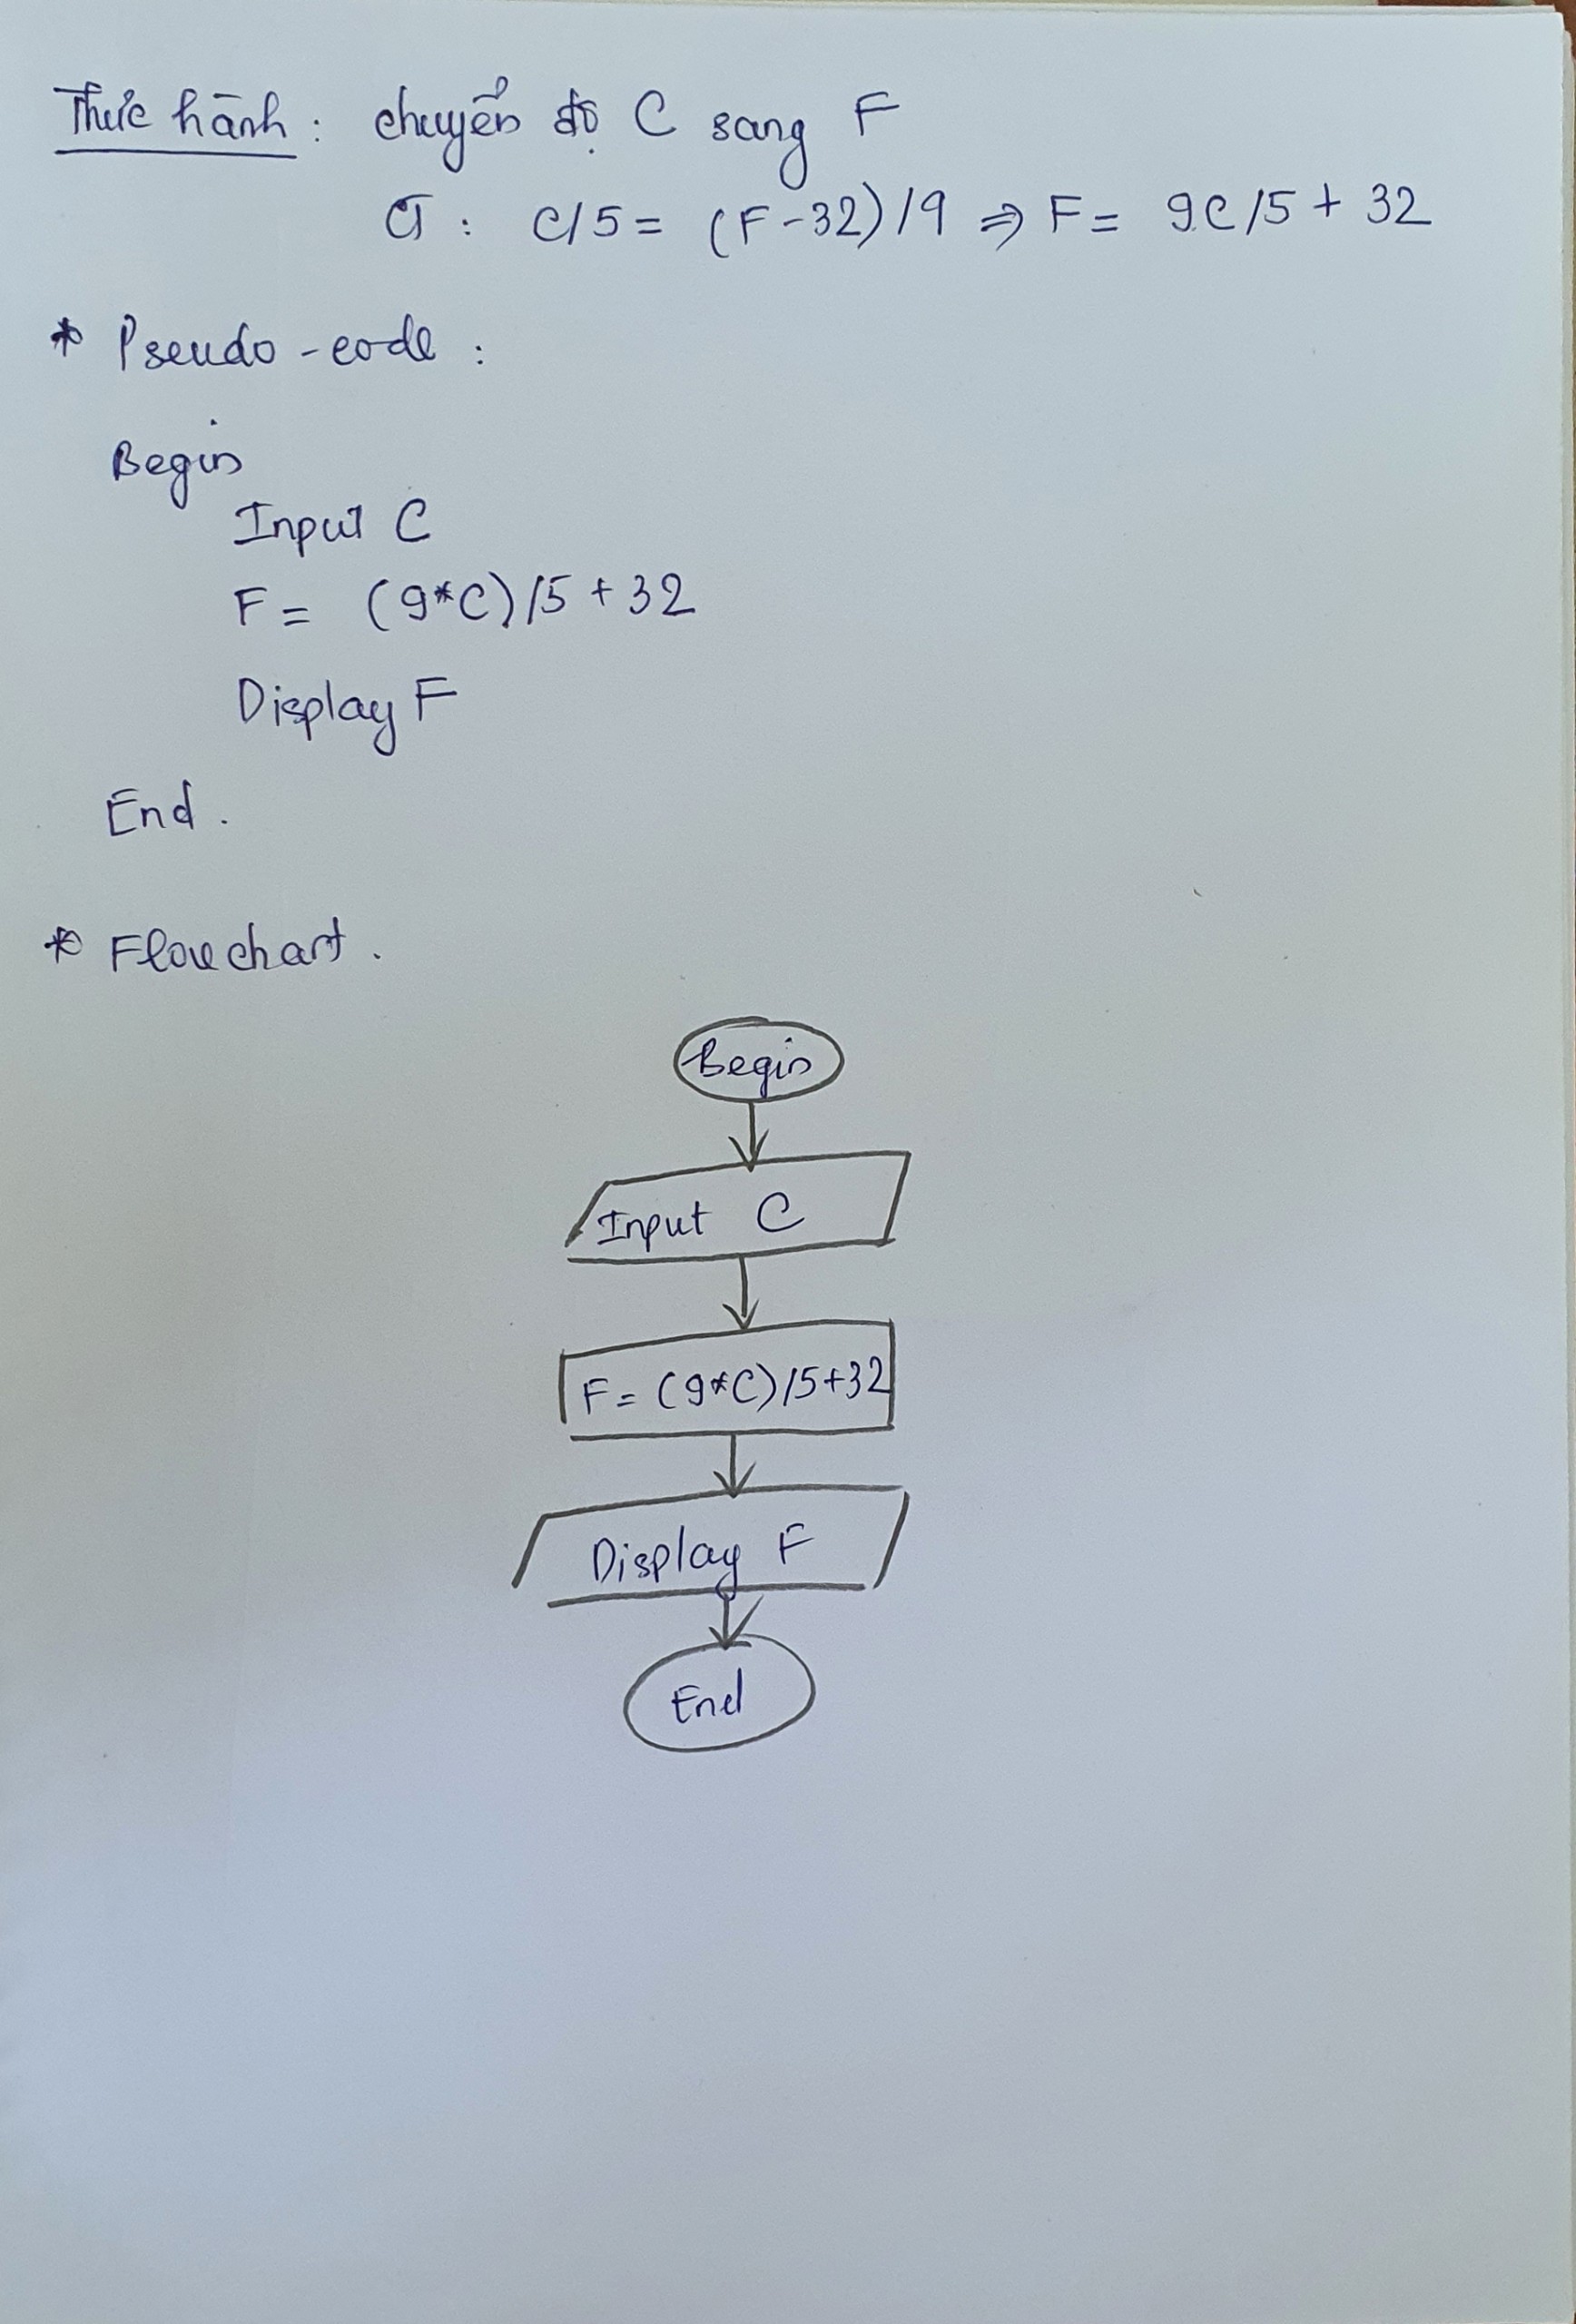 Thực hành: chuyển độ C sang F
CT: C/5 = (F-32)/9 => F = 9C/5 + 32
* Pseudo-code:
Begin
Input C
F = (9*C)/5 + 32
Display F
End.
* Flowchart.
Begin
Input C
F = (9*C)/5+32
Display F
End